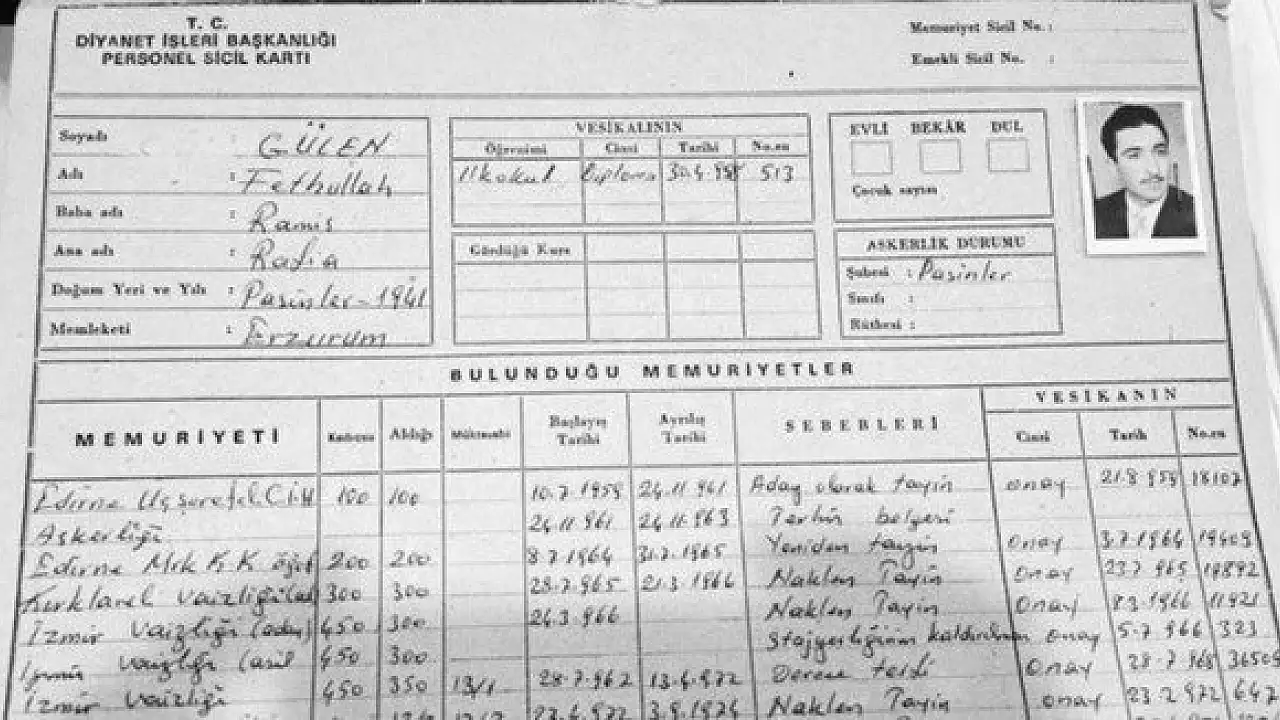 T. C.
DİYANET İŞLERİ BAŞKANLIĞI
PERSONEL SİCİL KARTI
Memuriyet Sicil No. :
Emekli Sicil No. :
Soyadı : GÜLEN
Adı : Fethullah
Baba adı : Ramis
Ana adı : Rafia
Doğum Yeri ve Yılı : Pasinler - 1941
Memleketi : Erzurum
VESİKALININ
Öğrenimi Cinsi Tarihi No.su
İlkokul Diploma 513
Gördüğü Kurs
EVLİ BEKÂR DUL
Çocuk sayısı
ASKERLİK DURUMU
Şubesi : Pasinler
Sınıfı :
Rütbesi :
BULUNDUĞU MEMURİYETLER
MEMURİYETİ Kadrosu Aldığı Müktesebi Başlayış Tarihi Ayrılış Tarihi SEBEBLERİ VESİKANIN Cinsi Tarih No.su
Edirne Üçşerefel. C. 100 100 10.7.1959 24.11.961 Aday olarak tayin onay 21.8.959 18107
Askerliği 24.11.961 24.11.963 Terhis belgesi
Edirne Mrk K.K 200 200 8.7.1964 31.7.1965 Yeniden tayin onay 3.7.1964 19409
Kırklareli vaizliği 300 300 28.7.965 21.3.1966 Naklen Tayin onay 23.7.965
İzmir vaizliği (aday) 450 300 26.3.966 Naklen Tayin onay 8.3.1966 11921
İzmir vaizliği (asil 450 300 Stajyerliğinin kaldırılması onay 5.7.966 323
İzmir vaizliği 450 350 13/1 13.4.972 Derece terfi onay 28.7.968 36509
3.9.1974 Naklen Tayin onay 23.2.972